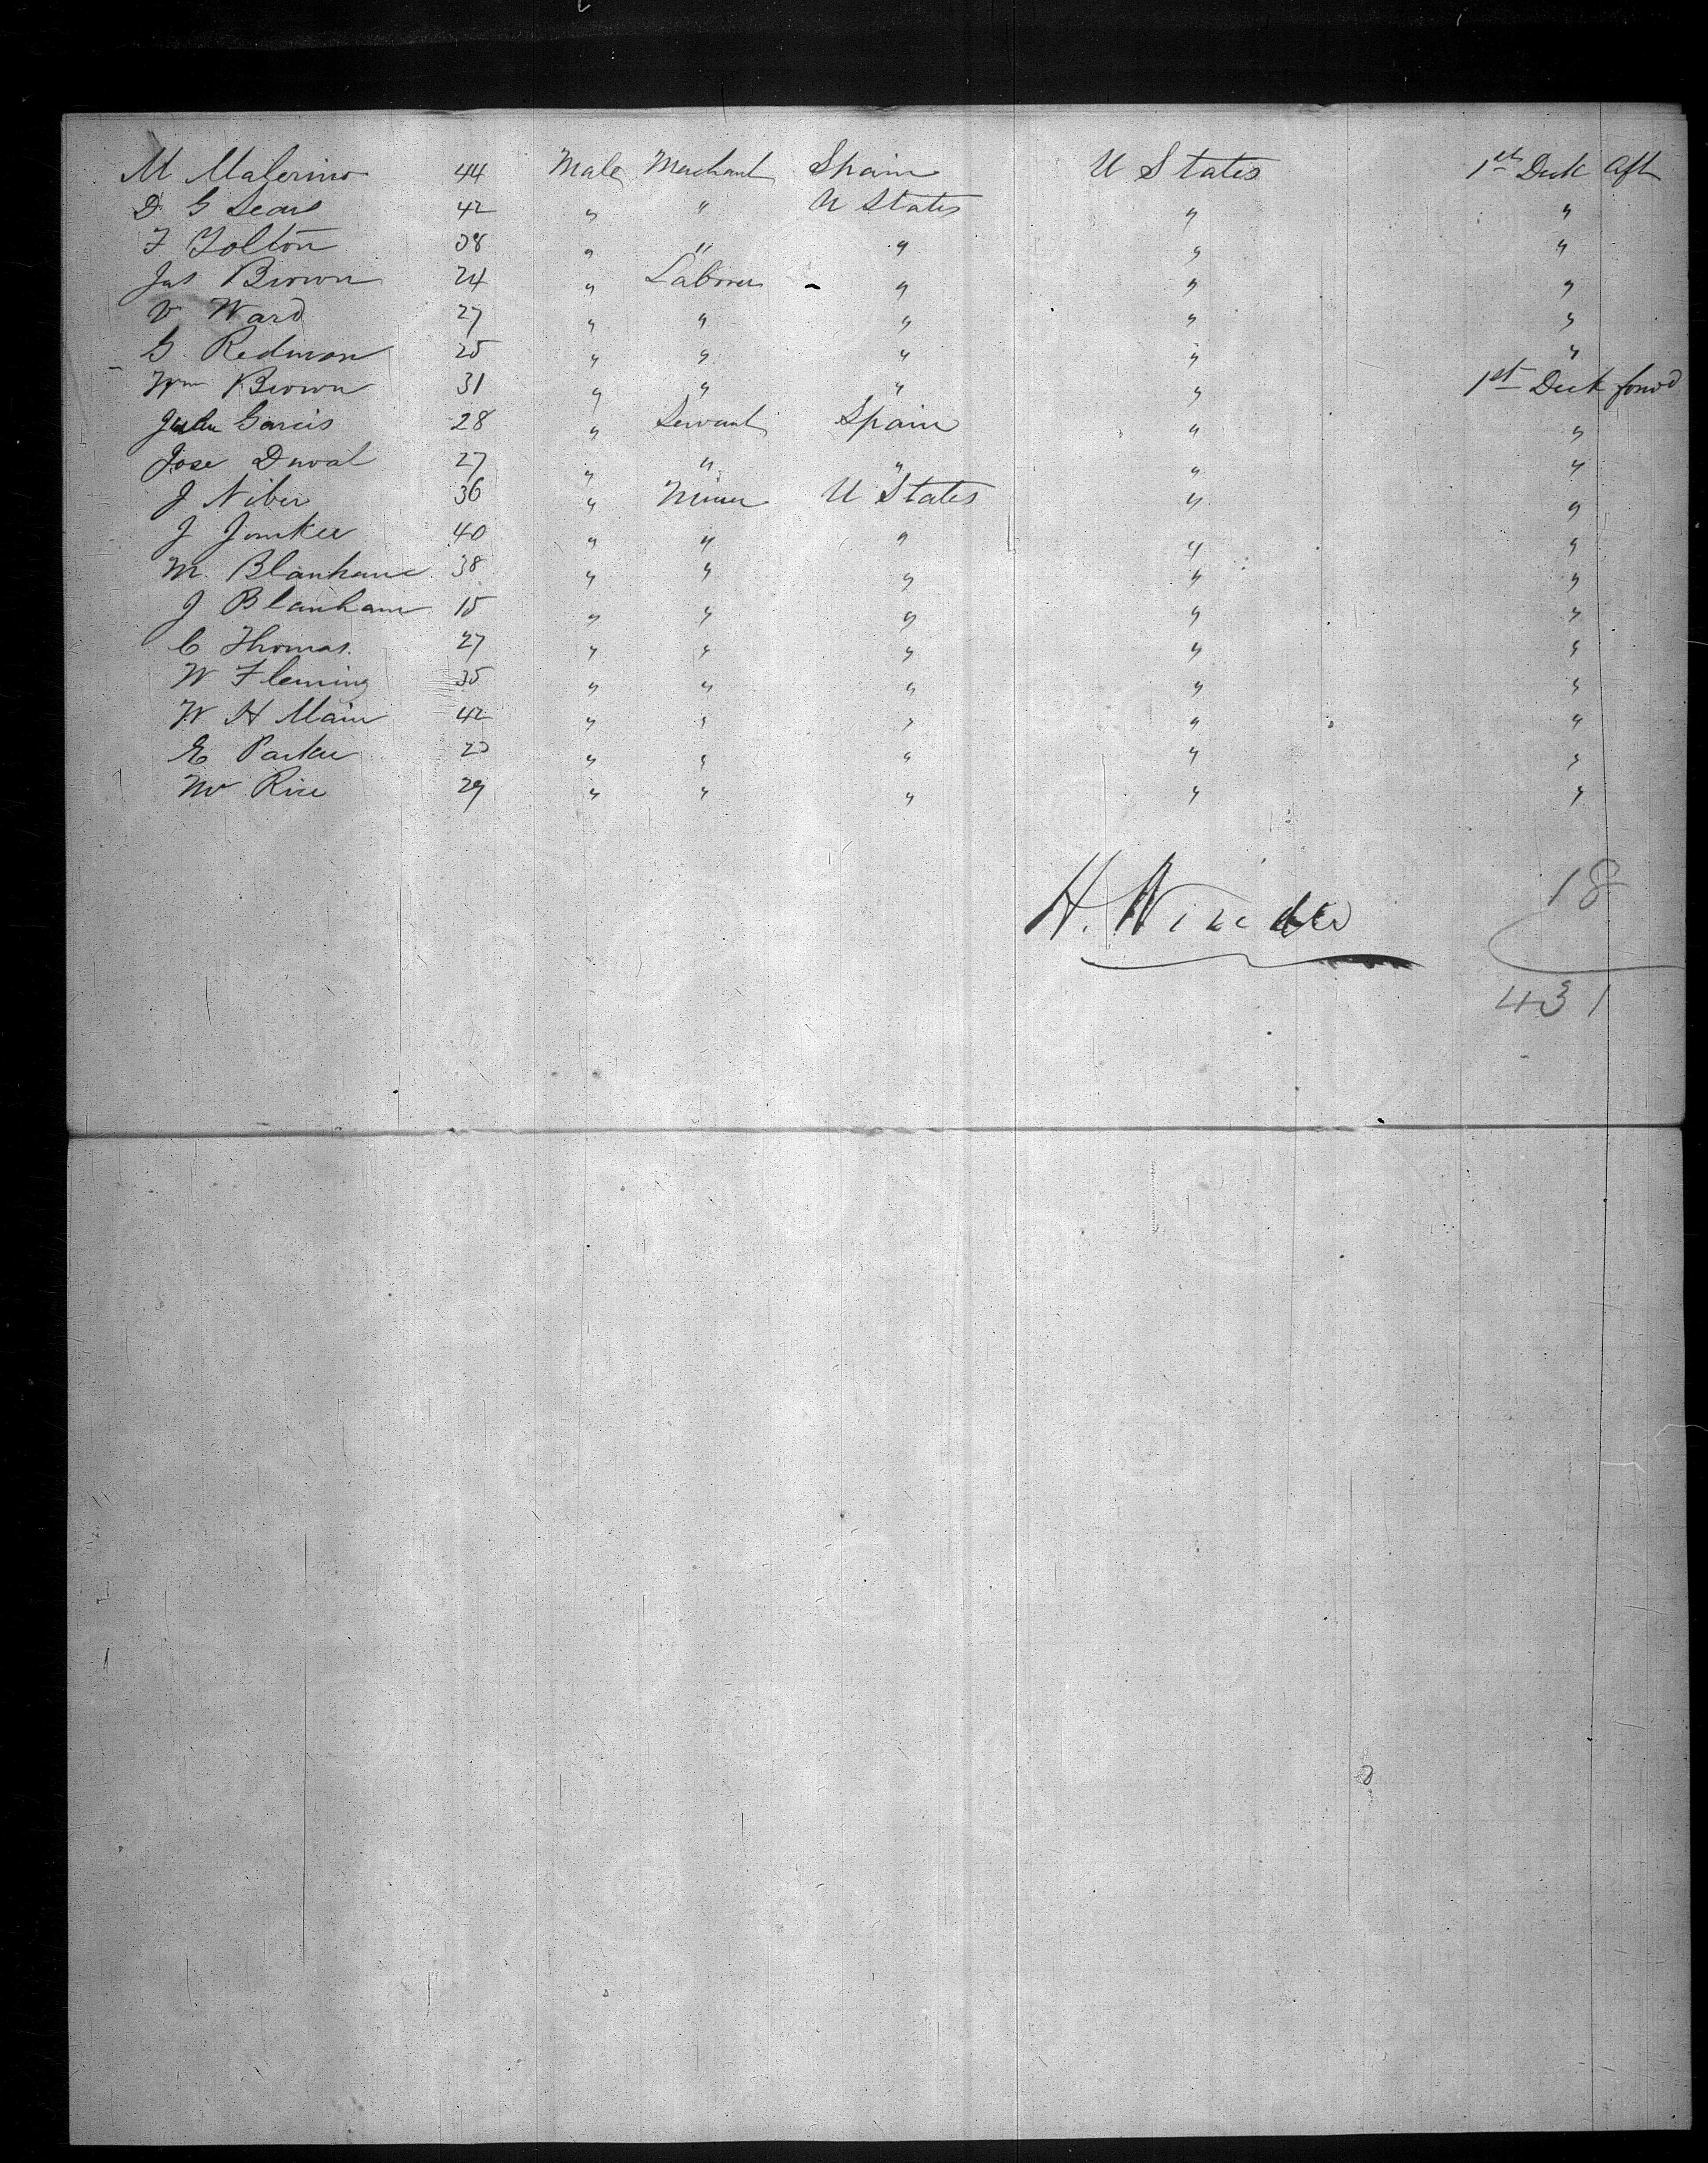 M Malerino 44 Male Merchant Spain U States 1st Deck Aft
D G Sears 42 " " U States " "
F Tolton 38 " " " " "
Jas Brown 24 " Laborer " " "
V Ward 27 " " " " "
G. Redmon 25 " " " " "
Wm Brown 31 " " " " 1st Deck forwd
Garcis 28 " Servant Spain " "
Jose Duval 27 " " " " "
J Niber 36 " Miner U States " "
J Jonker 40 " " " " "
M. Blanham 38 " " " " "
J Blanham 15 " " " " "
C Thomas. 27 " " " " "
W Fleming 35 " " " " "
W. H Main 42 " " " " "
E Parker " " " " "
Rice 29 " " " " "
H. Winder
18
431